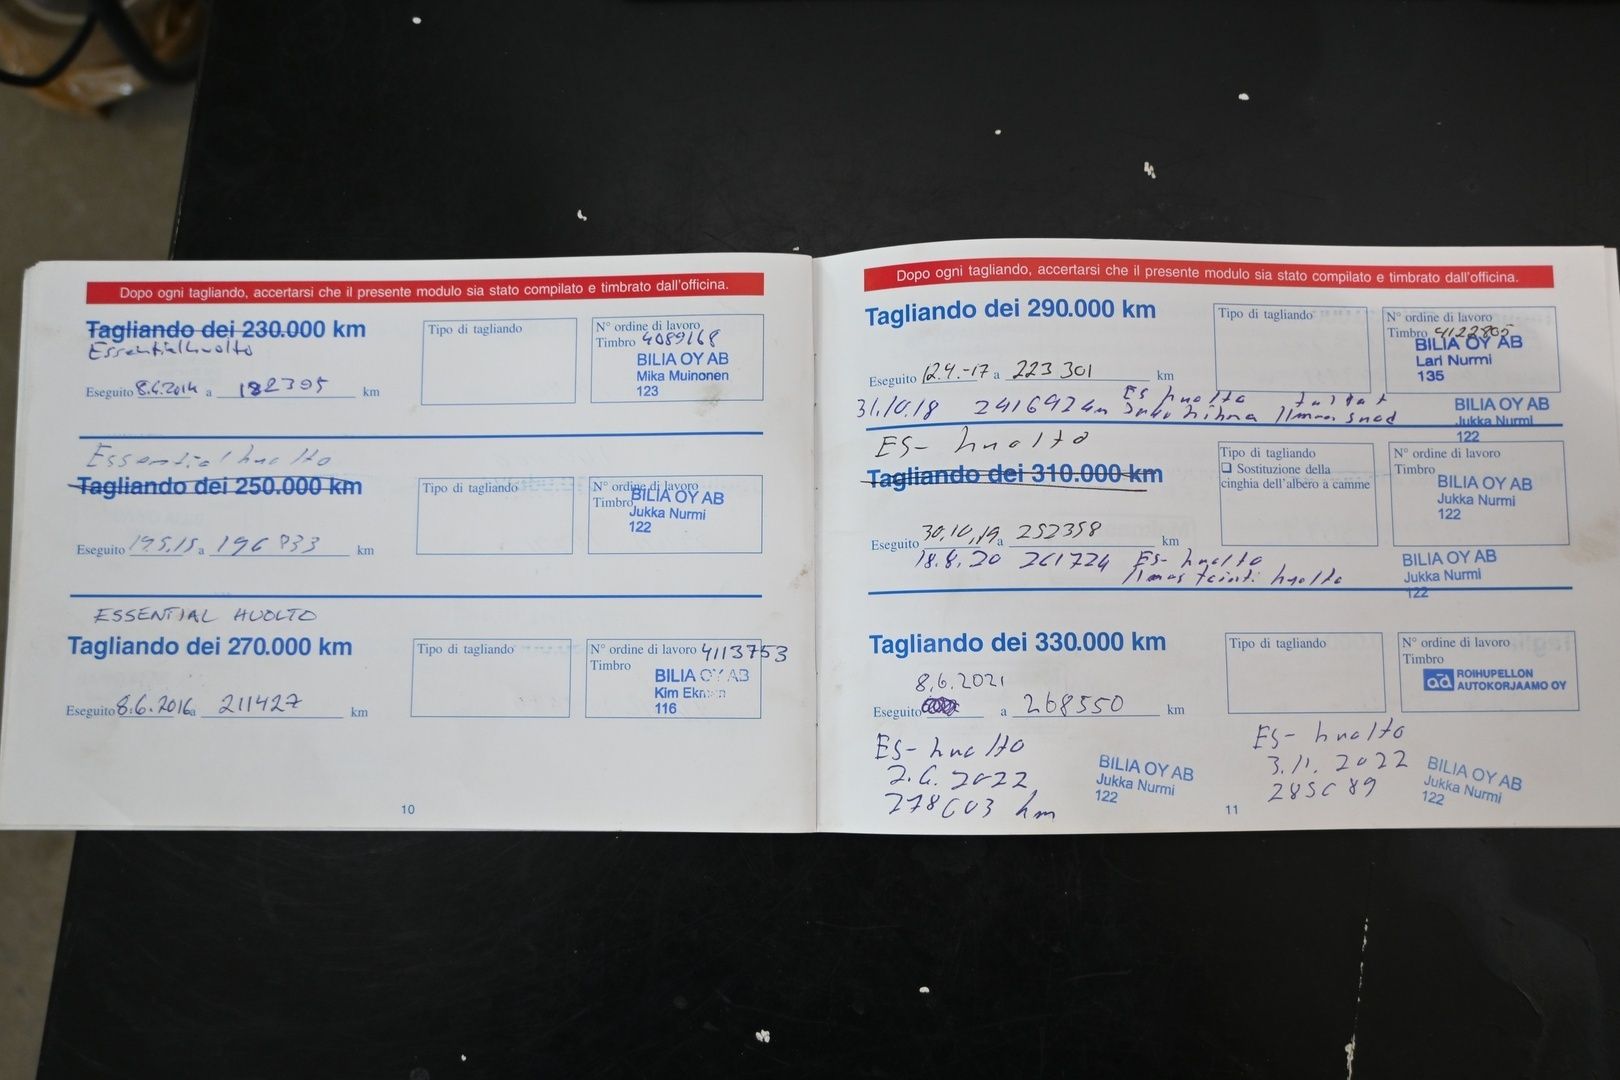 Dopo ogni tagliando, accertarsi che il presente modulo sia stato compilato e timbrato dall'officina.
Tagliando dei 230.000 km
Essentialhuolto
Eseguito 8.4.2014 a 182395 km
Tipo di tagliando
N° ordine di lavoro
Timbro 4089168
BILIA OY AB
Mika Muinonen
123
Essential huolto
Tagliando dei 250.000 km
Eseguito 19.5.15 a 196833 km
Tipo di tagliando
N° ordine di lavoro
Timbro
BILIA OY AB
Jukka Nurmi
122
ESSENTIAL HUOLTO
Tagliando dei 270.000 km
Eseguito 8.6.2016 a 211427 km
Tipo di tagliando
N° ordine di lavoro 4113753
Timbro
BILIA OY AB
Kim Ekman
116
10
Dopo ogni tagliando, accertarsi che il presente modulo sia stato compilato e timbrato dall'officina.
Tagliando dei 290.000 km
Eseguito 12.4.-17 a 223 301 km
Tipo di tagliando
N° ordine di lavoro
Timbro 4122805
BILIA OY AB
Lari Nurmi
135
31.10.18 241692 km Es huolto
hihna Ilman
BILIA OY AB
Jukka Nurmi
122
ES- huolto
Tagliando dei 310.000 km
Eseguito 30.10.19 a 252358 km
Tipo di tagliando
❑ Sostituzione della
cinghia dell'albero a camme
N° ordine di lavoro
Timbro
BILIA OY AB
Jukka Nurmi
122
18.8.20 261724 Es- huolto
Ilmastointi huolto
BILIA OY AB
Jukka Nurmi
122
Tagliando dei 330.000 km
8.6.2021
Eseguito a 268550 km
Tipo di tagliando
N° ordine di lavoro
Timbro
ad ROIHUPELLON
AUTOKORJAAMO OY
Es- huolto
2.6.2022
278603 km
BILIA OY AB
Jukka Nurmi
122
Es- huolto
3.11.2022
285689
BILIA OY AB
Jukka Nurmi
122
11